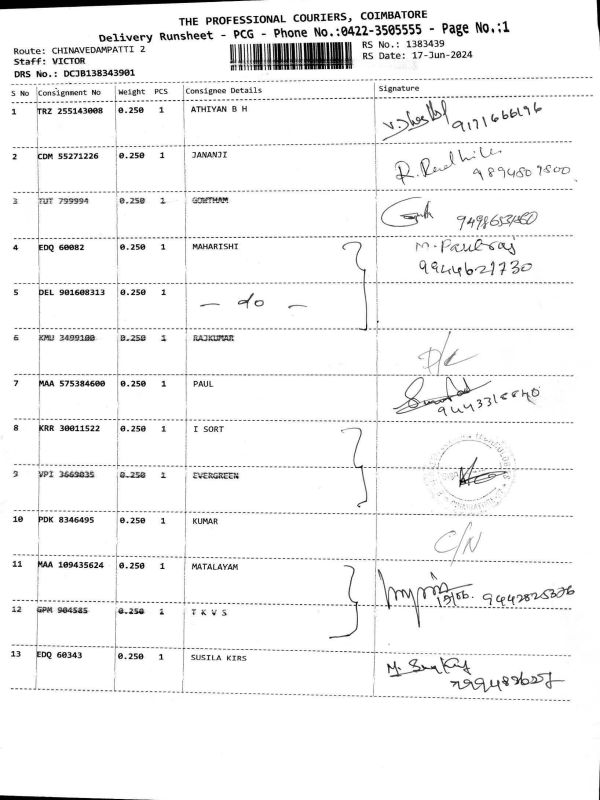 THE PROFESSIONAL COURIERS, COIMBATORE
Delivery Runsheet - PCG - Phone No.:0422-3505555 - Page No.:1
Route: CHINAVEDAMPATTI 2
RS No.: 1383439
Staff: VICTOR
RS Date: 17-Jun-2024
DRS No.: DCJB138343901
S No Consignment No Weight PCS Consignee Details Signature
1 TRZ 255143008 0.250 1 ATHIYAN B H
9171666196
2 CDM 55271226 0.250 1 JANANJI
9894809800
3 TUT 799994 0.250 1 GOWTHAM
4 EDQ 60082 0.250 1 MAHARISHI M. Paulraj
9944621730
5 DEL 901608313 0.250 1 — do —
6 KMU 3499100 0.250 1 RAJKUMAR D/L
7 MAA 575384600 0.250 1 PAUL
8 KRR 30011522 0.250 1 I SORT
9 VPI 3669035 0.250 1 EVERGREEN
10 PDK 8346495 0.250 1 KUMAR C/N
11 MAA 109435624 0.250 1 MATALAYAM
12 GPM 904585 0.250 1 T K V S
13 EDQ 60343 0.250 1 SUSILA KIRS